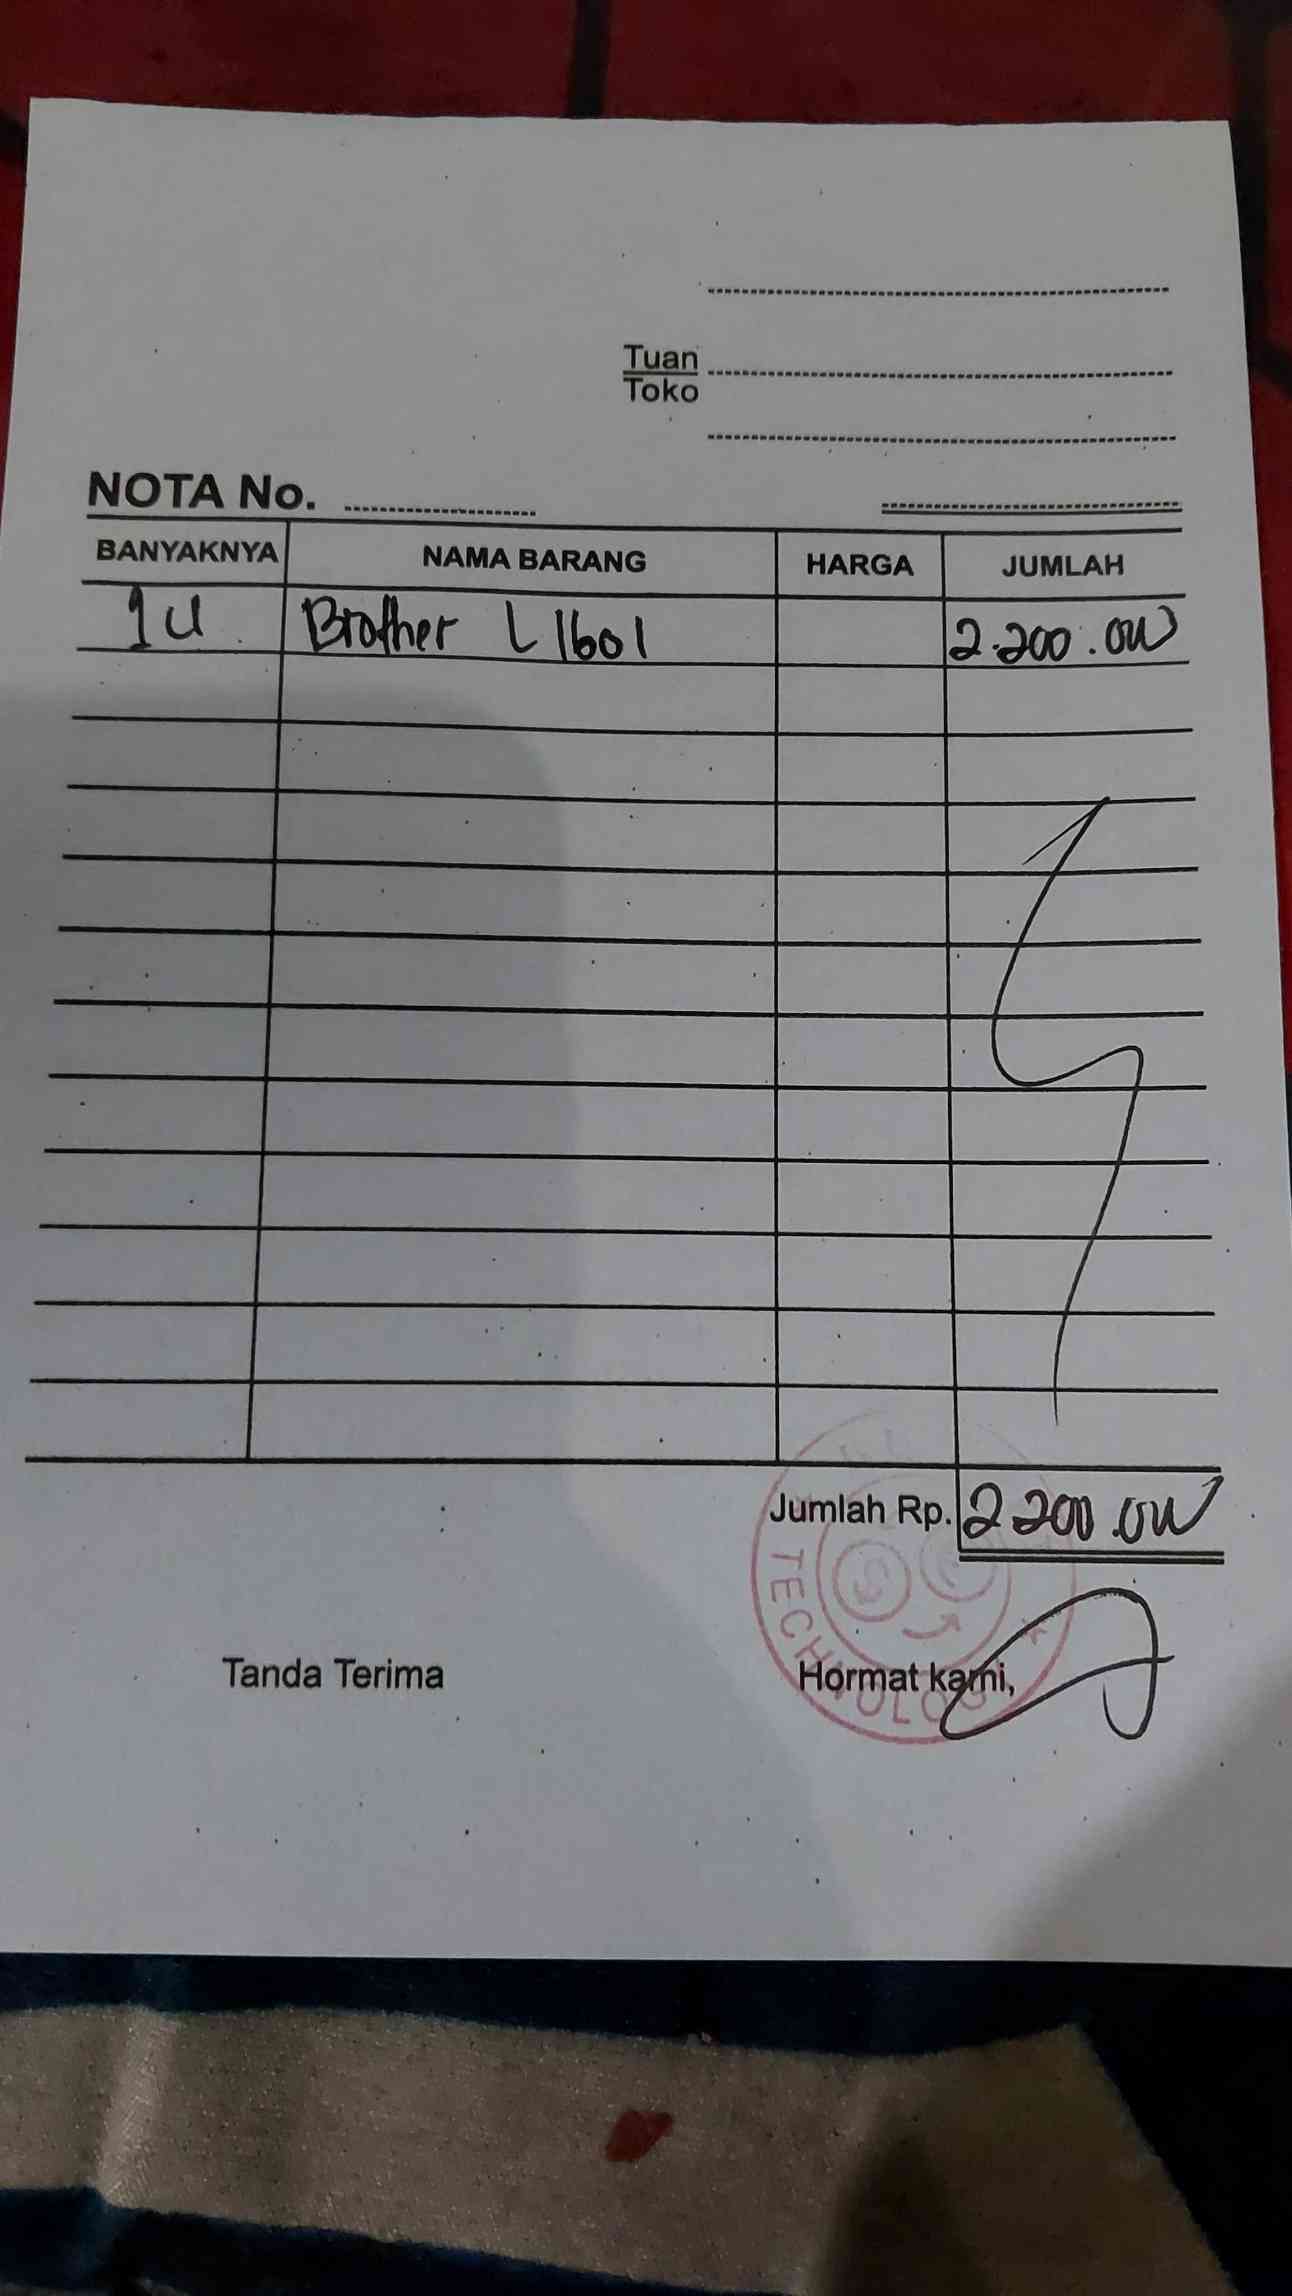 Tuan
Toko
NOTA No.
BANYAKNYA NAMA BARANG HARGA JUMLAH
1 U Brother L 1601 2.200.000
Jumlah Rp. 2 200.000
TECHNOLOG
Tanda Terima Hormat kami,